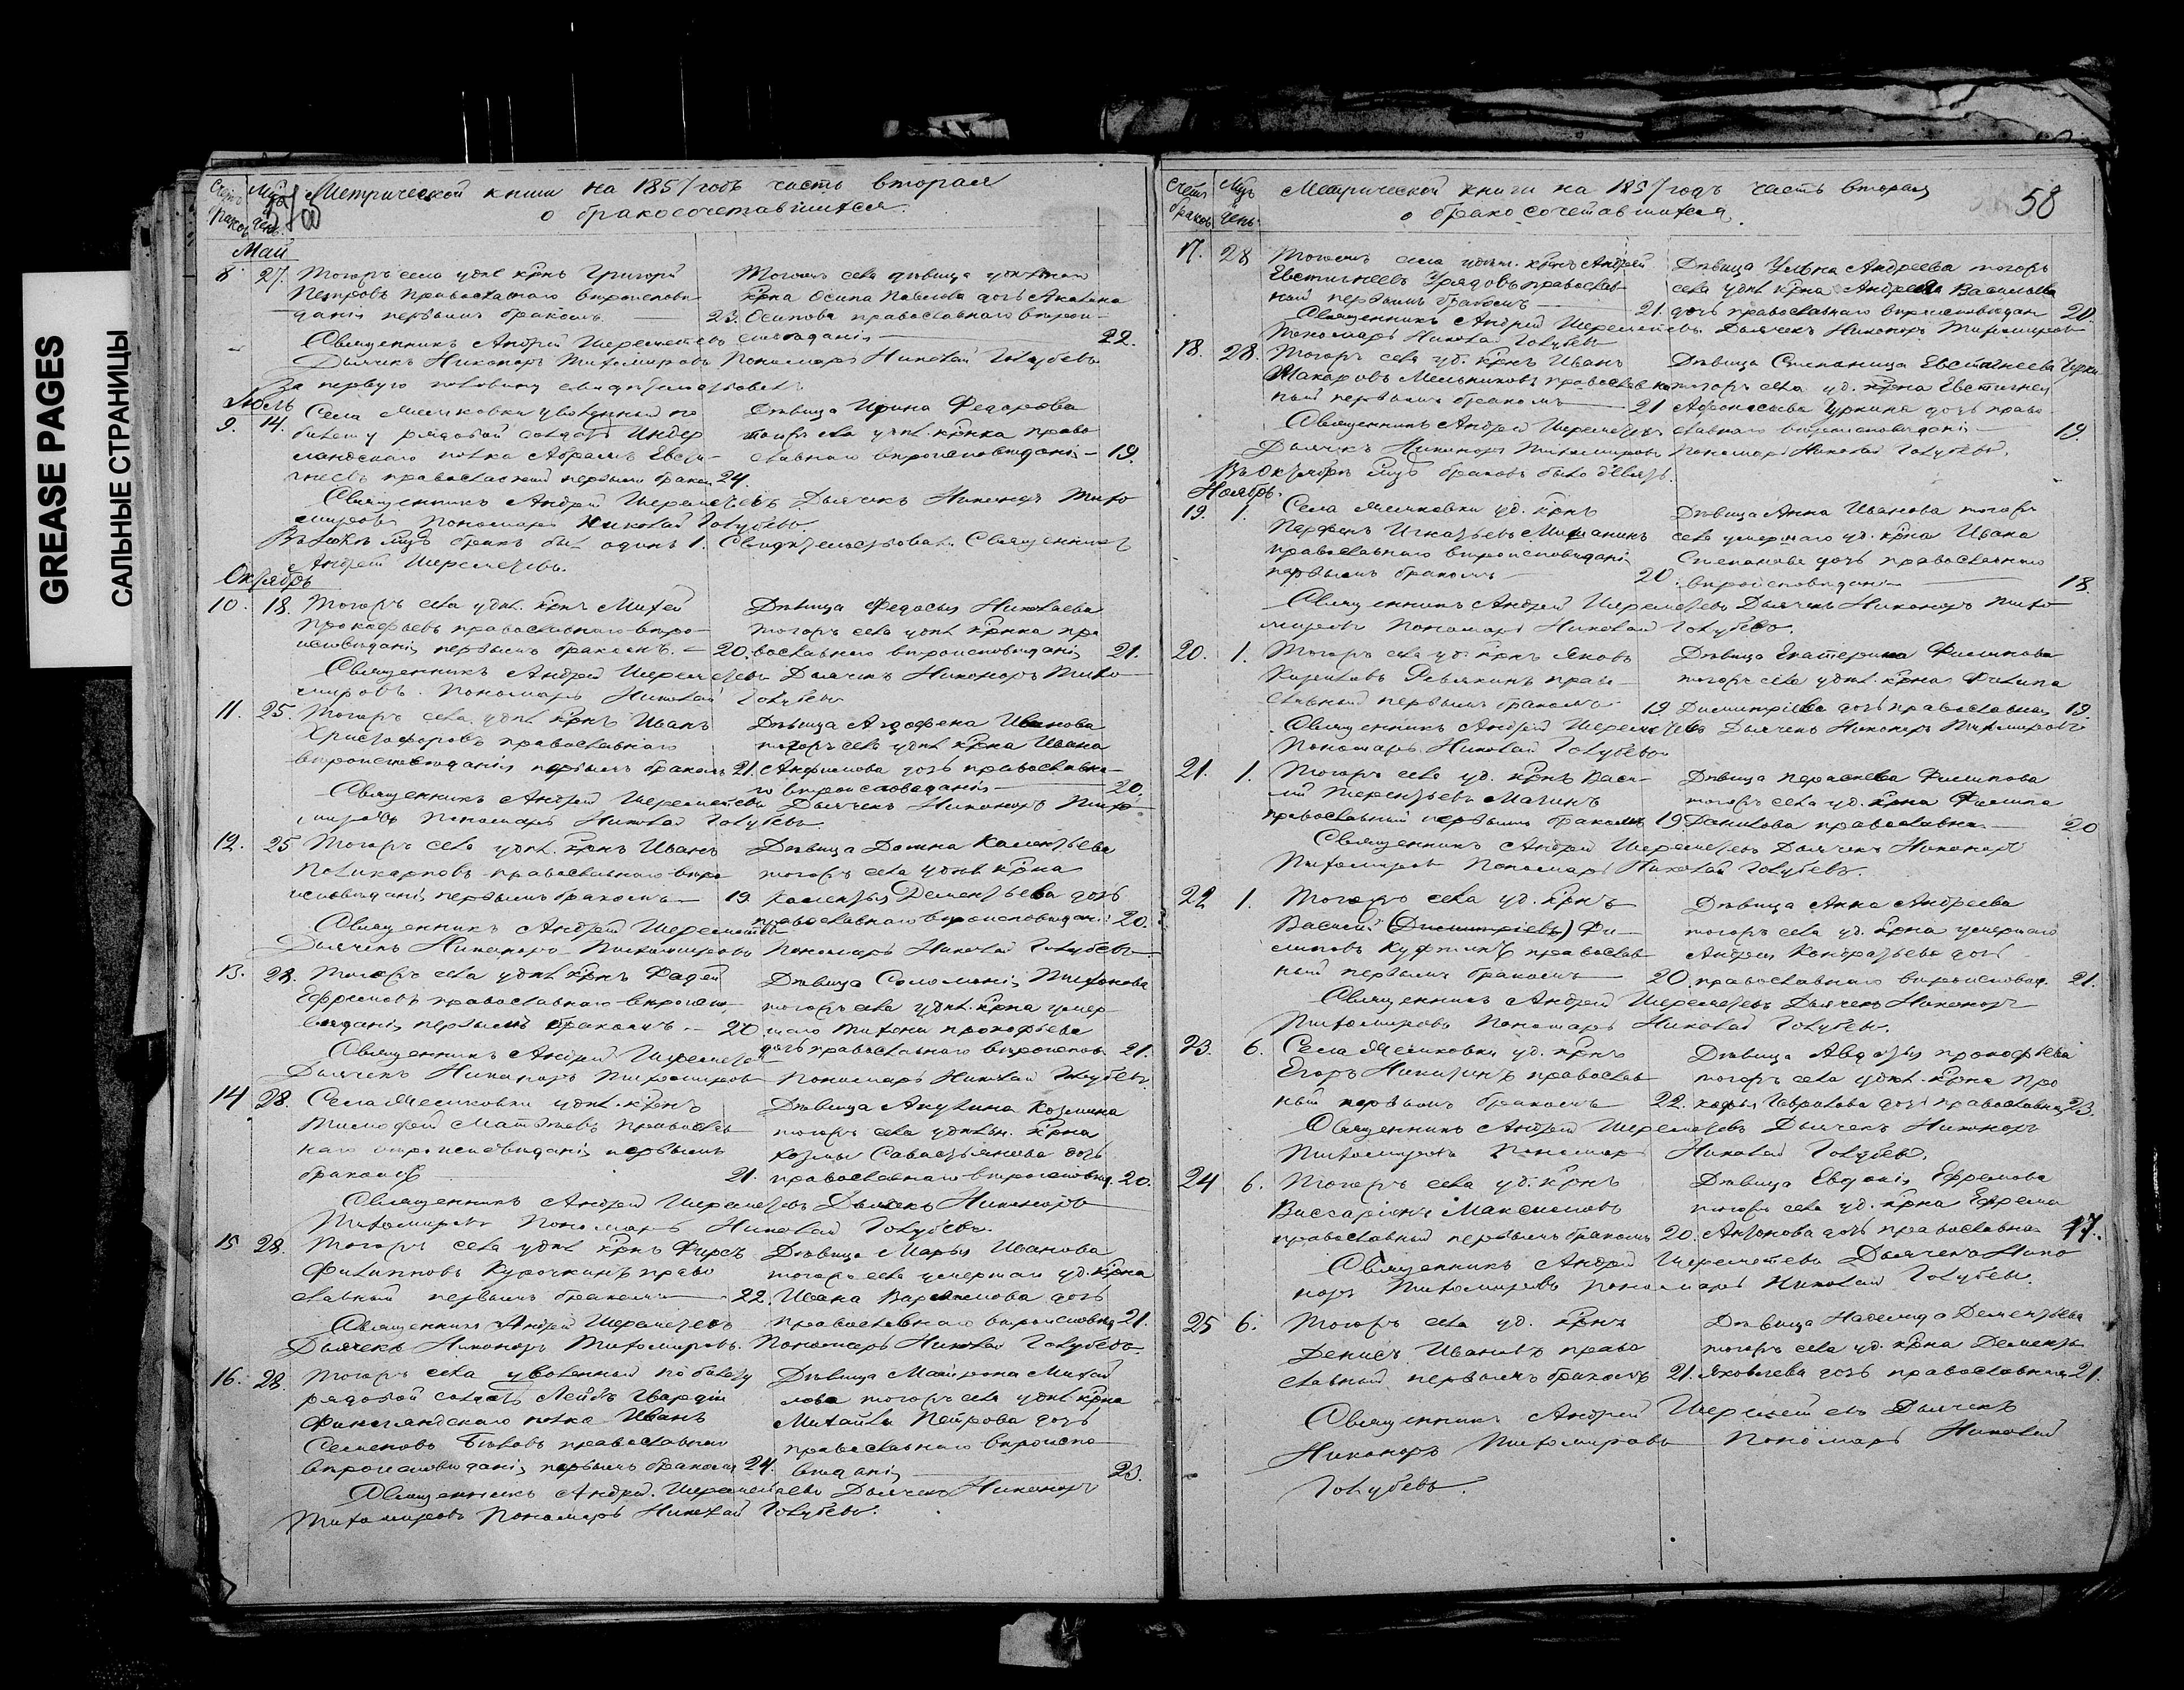 GREASE PAGES
САЛЬНЫЕ СТРАНИЦЫ
Счетъ браковъ
Мцъ день
Метрической книги на 1857 годъ часть вторая
о бракосочетавшихся.
Май
8 27. Тогожъ села удѣл крнъ Григорій
Петровъ православнаго вѣроиспове-
данія первымъ бракомъ 23.
Тогожъ села дѣвица удѣльнаго
крна Осипа Павлова дочь Акилина
Осипова православнаго вѣрои-
сповѣданія 22.
Священникъ Андрей Шереметевъ
Дьячекъ Никоноръ Тихомировъ Пономарь Николай Голубевъ
За первую половину свидѣтельствовалъ
Июль
9. 14. Села Мечковки уволенный по
билету рядовой солдатъ
полка Абрамъ Евсти-
гнеевъ православный первымъ браком 24.
Дѣвица Ирина Федорова
тогожъ села удѣл. крнка право-
славнаго вѣроисповѣданія 19.
Священникъ Андрей Шереметевъ Дьячекъ Никоноръ Тихо-
мировъ Пономарь Николай Голубевъ.
Въ Июлѣ мцѣ бракъ былъ одинъ 1. Свидѣтельствовалъ Священникъ
Андрей Шереметевъ.
Октябрь
10. 18. Тогожъ села удѣл. крнъ Михей
Прокофьевъ православнаго вѣро-
исповѣданія первымъ бракомъ. 20.
Дѣвица Федосья Николаева
тогожъ села удѣл крнка пра-
вославнаго вѣроисповѣданія 21.
Священникъ Андрей Шереметевъ Дьячекъ Никоноръ Тихо-
мировъ. Пономарь Николай Голубевъ
11. 25. Тогожъ села удѣл крнъ Иванъ
Христофоровъ православнаго
вѣроисповѣданія первымъ бракомъ 21.
Дѣвица Агрофена Иванова
тогожъ села удѣл крна Ивана
Анфимова дочь православна-
го вѣроисповеданія 20.
Священникъ Андрей Шереметевъ Дьячекъ Никоноръ Тихо-
мировъ Пономарь Николай Голубевъ.
12. 25 Тогожъ села удѣл. крнъ Иванъ
Поликарповъ православнаго вѣро-
исповѣданія первымъ бракомъ 19
Дѣвица Домна Калентьева
тогожъ села удѣл крна
Калентья Дементьева дочь
православнаго вѣроисповѣдан. 20.
Священникъ Андрей Шереметевъ
Дьячекъ Никоноръ Тихомировъ Пономарь Николай Голубевъ
13. 28. Тогожъ села удѣл крнъ Фадей
Ефремовъ православнаго вѣроиспо-
вѣданія первымъ бракомъ. 20
Дѣвица Соломанія Тихонова
тогожъ села удѣл. крна умер-
шаго Тихона Прокофьева
дочь православнаго вѣроиспов. 21.
Священникъ Андрей Шереметевъ
Дьячекъ Никаноръ Тихомировъ Пономарь Николай Голубевъ.
14 28. Села Мечковки удѣл. крнъ
Тимофей Матвѣевъ православ-
наго вѣроисповѣданія первымъ
бракомъ 21.
Дѣвица Акулина Козмина
тогожъ села удѣльн. крна
Козмы Савастьянова дочь
православнаго вѣроисповѣд. 20.
Священникъ Андрей Шереметевъ Дьячекъ Никоноръ
Тихомировъ Пономарь Николай Голубевъ.
15 28. Тогожъ села удѣл крнъ Фирсъ
Филипповъ Курочкинъ право-
славный первымъ бракомъ 22.
Дѣвица Марья Иванова
тогожъ села умершаго уд. крна
Ивана Варламова дочь
православнаго вѣроисповѣд 21.
Священникъ Андрей Шереметевъ
Дьячекъ Никоноръ Тихомировъ. Пономарь Николай Голубевъ.
16. 28. Тогожъ села уволенный по билету
рядовой солдатъ Лейбъ Гвардіи
Финляндскаго полка Иванъ
Семеновъ Бѣловъ православнаго
вѣроисповѣданія первымъ бракомъ 24.
Дѣвица Матрона Михай-
лова тогожъ села удѣл крна
Михайлы Петрова дочь
православнаго вѣроиспо-
вѣданія 23.
Священникъ Андрей Шереметевъ Дьячекъ Никоноръ
Тихомировъ Пономарь Николай Голубевъ.
Счетъ браковъ
Мцъ день
Метрической книги на 1857 годъ часть вторая
о бракосочетавшихся.
58
17. 28 Тогожъ села удѣл. крнъ Андрей
Евстигнеевъ Урядовъ православ-
ный первымъ бракомъ 21.
Дѣвица Ульяна Андреева тогожъ
села удѣл крна Андрея Васильева
дочь православнаго вѣроисповѣдан 20.
Священникъ Андрей Шереметевъ Дьячекъ Никоноръ Тихомировъ
Пономарь Николай Голубевъ
18. 28. Тогожъ села уд. крнъ Иванъ
Макаровъ Мельниковъ православ-
ный первымъ бракомъ 21
Дѣвица Степанида Евстигнеева
тогожъ села уд. крна Евстигнея
Афонасьева Чуркина дочь право-
славнаго вѣроисповѣданія 19.
Священникъ Андрей Шереметевъ
Дьячекъ Никоноръ Тихомировъ Пономарь Николай Голубевъ.
Въ Октябрѣ мцѣ браковъ было девять.
Ноябрь.
19. 1. Села Мечковки уд. крнъ
Парфенъ Игнатьевъ Мишанинъ
православнаго вѣроисповѣданія
первымъ бракомъ 20.
Дѣвица Анна Иванова тогожъ
села умершаго уд. крна Ивана
Степанова дочь православнаго
вѣроисповѣданія 18.
Священникъ Андрей Шереметевъ Дьячекъ Никоноръ Тихо-
мировъ Пономарь Николай Голубевъ.
20. 1. Тогожъ села уд. крнъ Яковъ
Кириловъ Ревякинъ право-
славный первымъ бракомъ 19
Дѣвица Екатерина Филипова
тогожъ села удѣл. крна Филипа
Дмитріева дочь православная 19.
Священникъ Андрей Шереметевъ Дьячекъ Никоноръ Тихомировъ
Пономарь Николай Голубевъ
21. 1. Тогожъ села уд. крнъ Васи-
лій Терентьевъ Магинъ
православный первымъ бракомъ 19
Дѣвица Параскева Филипова
тогожъ села уд. крна Филипа
Данилова православная 20
Священникъ Андрей Шереметевъ Дьячекъ Никоноръ
Тихомировъ Пономарь Николай Голубевъ.
22 1. Тогожъ села уд. крнъ
Василій (Дмитріевъ) Фи-
липовъ православ-
ный первымъ бракомъ 20.
Дѣвица Анна Андреева
тогожъ села уд. крна умершаго
Андрея Кондратьева дочь
православнаго вѣроисповѣд. 21.
Священникъ Андрей Шереметевъ Дьячекъ Никоноръ
Тихомировъ Пономарь Николай Голубевъ.
23. 6. Села Мечковки уд. крнъ
Егоръ Никитинъ православ-
ный первымъ бракомъ 22.
Дѣвица Авдотья Прокофьева
тогожъ села удѣл. крна Про-
кофья Гаврилова дочь православная 23.
Священникъ Андрей Шереметевъ Дьячекъ Никоноръ
Тихомировъ Пономарь Николай Голубевъ.
24 6. Тогожъ села уд. крнъ
Вассаріонъ Максимовъ
православный первымъ бракомъ 20.
Дѣвица Евдокія Ефремова
тогожъ села уд. крна Ефрема
Антонова дочь православная 17.
Священникъ Андрей Шереметевъ Дьячекъ Нико-
норъ Тихомировъ Пономарь Николай Голубевъ.
25 6. Тогожъ села уд. крнъ
Денисъ Ивановъ право-
славный первымъ бракомъ 21.
Дѣвица Надежда Дементьева
тогожъ села уд. крна Дементья
Яковлева дочь православная 21.
Священникъ Андрей Шереметевъ Дьячекъ
Никоноръ Тихомировъ Пономарь Николай
Голубевъ.